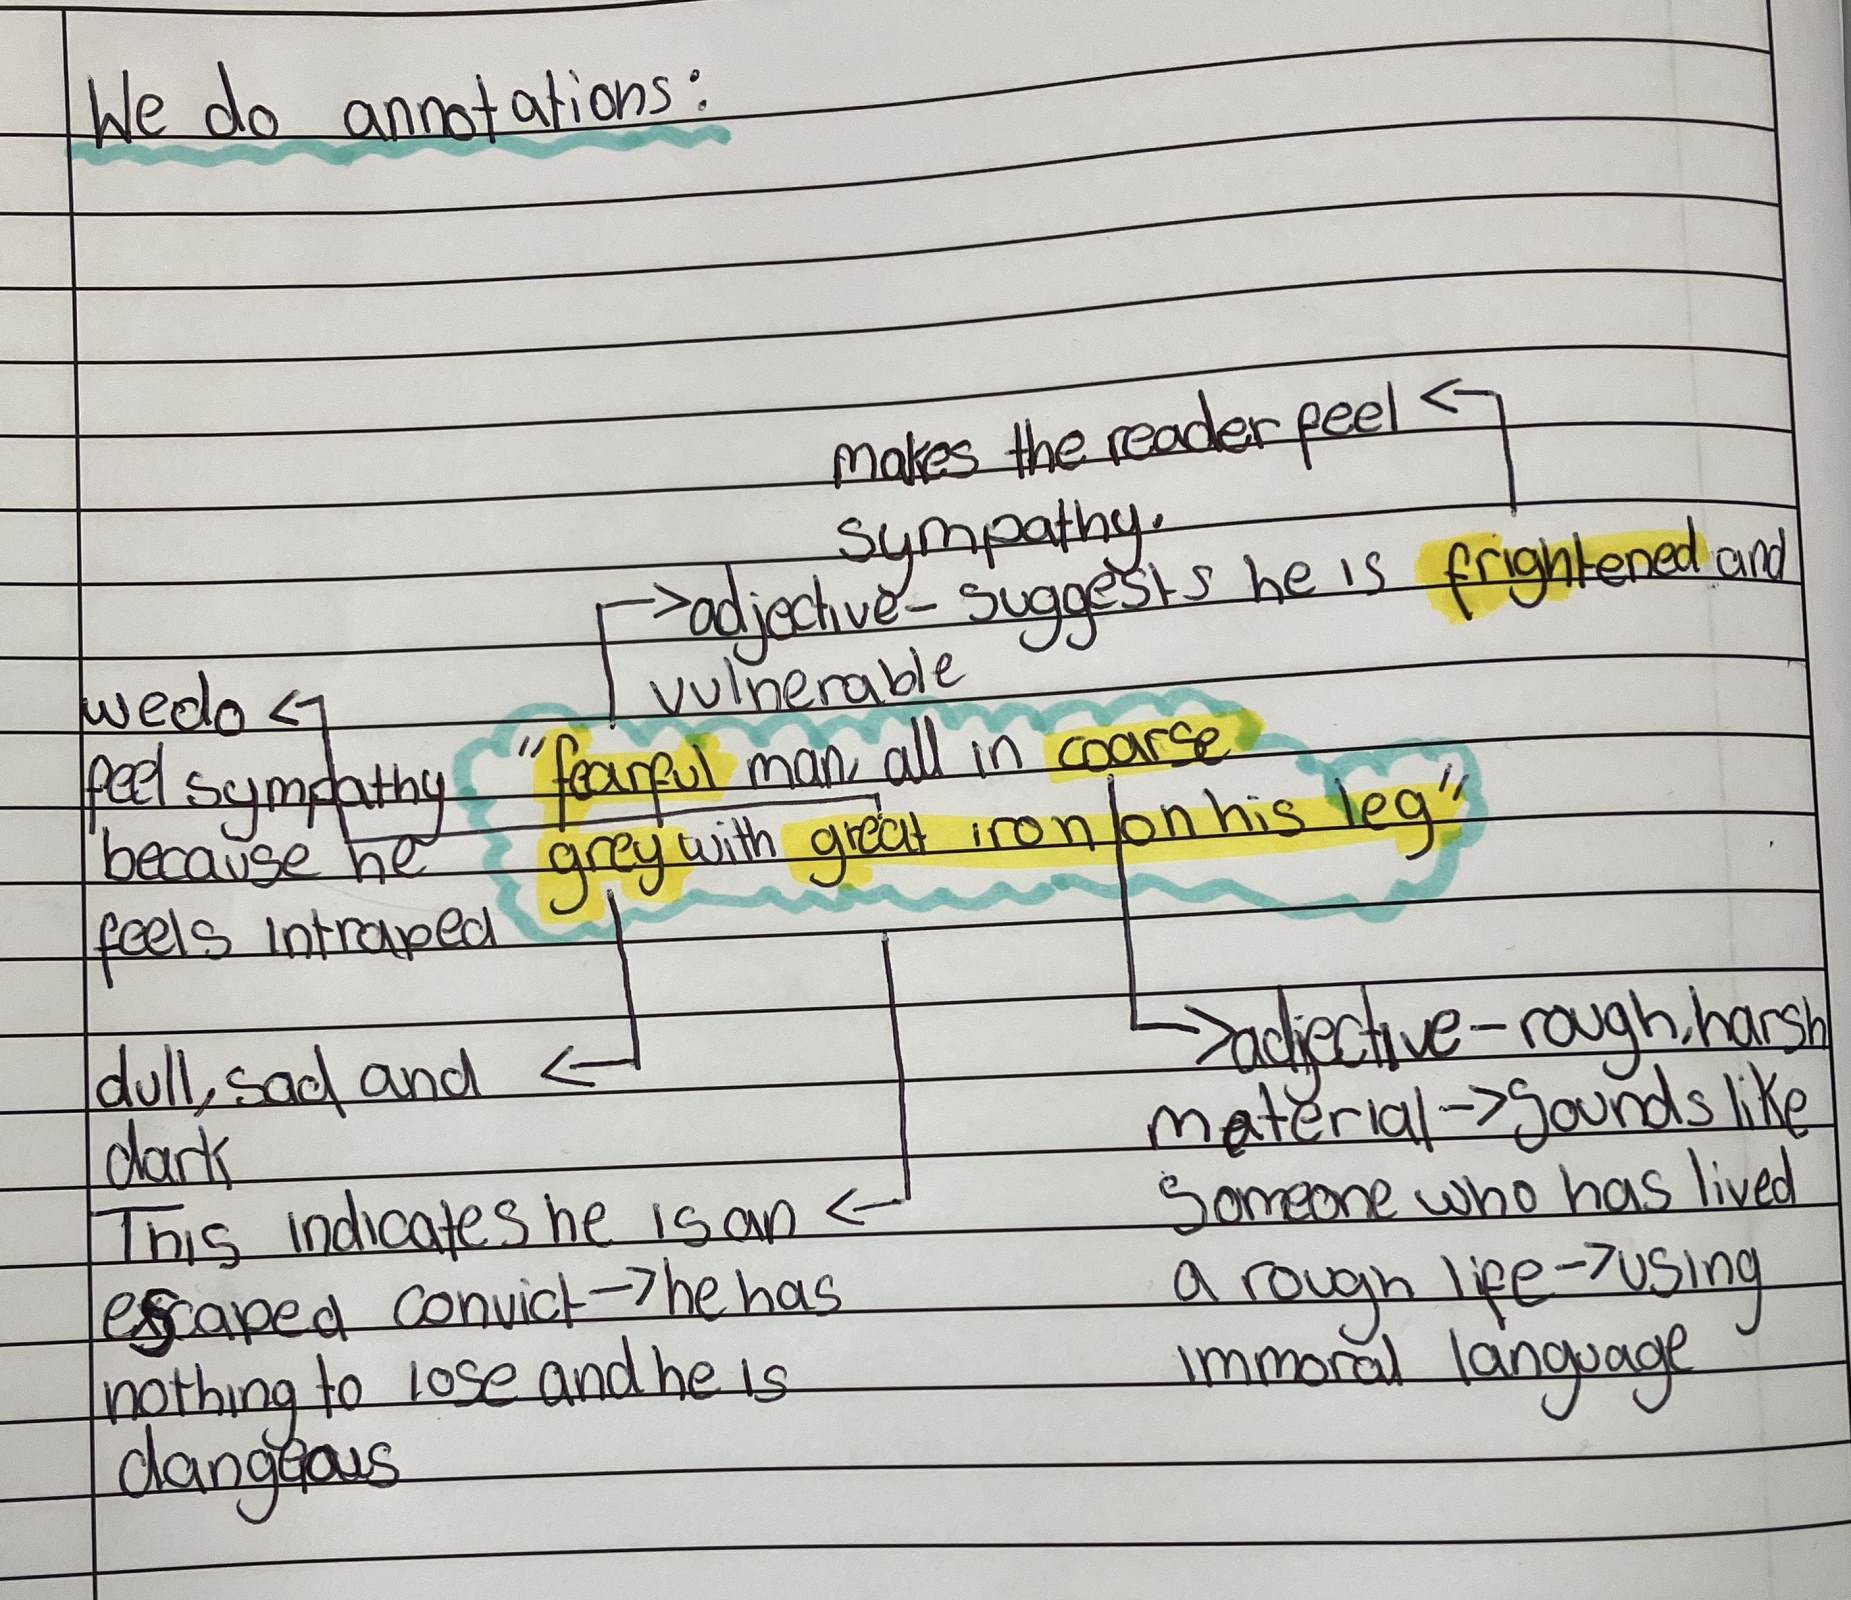 We do annotations:
makes the reader feel
sympathy.
adjective - suggests he is frightened and
vulnerable
we do
feel sympathy
because he
feels intraped
"fearful man, all in coarse
grey with great iron on his leg"
dull, sad and
dark
This indicates he is an
escaped convict -> he has
nothing to lose and he is
dangeous
adjective - rough, harsh
material -> sounds like
someone who has lived
a rough life -> using
immoral language